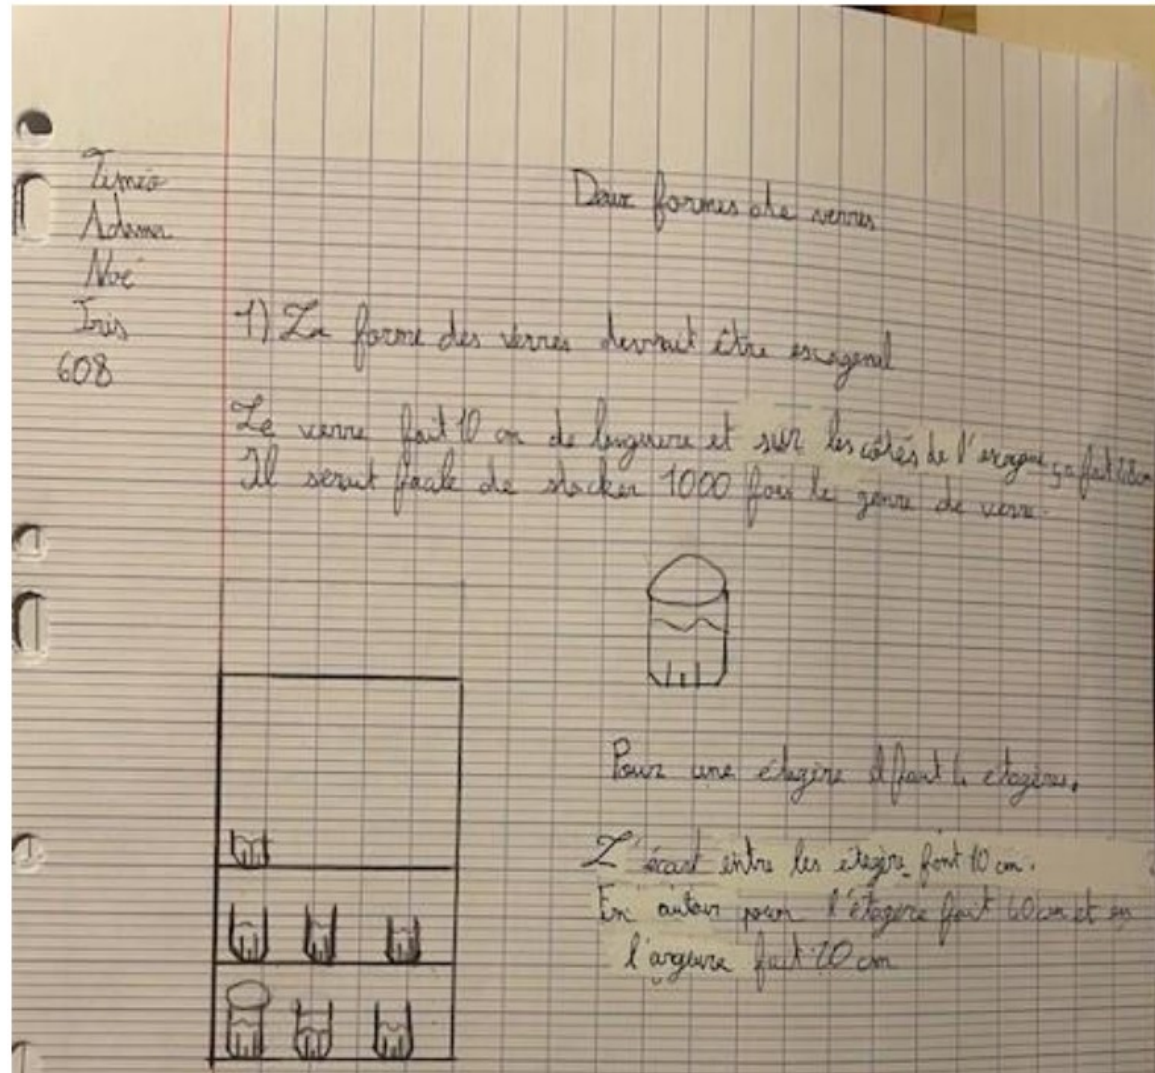 Timéo
Adame
Noé
Iris
608
Deux formes de verres
1) La forme des verres devrait être exagonal
Le verre fait 10 cm de longueure et sur les côtés de l'exagone ça fait
Il serait facile de stocker 1000 fois le genre de verre.
Pour une étagère il faut étagères.
L'écart entre les étagère font 10 cm.
En autour pour l'étagère fait 40 cm et en
l'argeure fait 20 cm